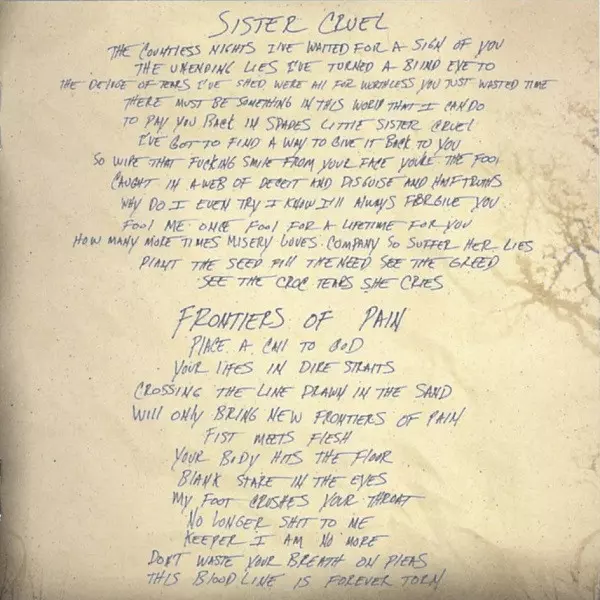 SISTER CRUEL
THE COUNTLESS NIGHTS I'VE WAITED FOR A SIGN OF YOU
THE UNENDING LIES I'VE TURNED A BLIND EYE TO
THE DELUGE OF TEARS I'VE SHED WERE ALL FOR WORTHLESS YOU JUST WASTED TIME
THERE MUST BE SOMETHING IN THIS WORLD THAT I CAN DO
TO PAY YOU BACK IN SPADES LITTLE SISTER CRUEL
I'VE GOT TO FIND A WAY TO GIVE IT BACK TO YOU
SO WIPE THAT FUCKING SMILE FROM YOUR FACE YOU'RE THE FOOL
CAUGHT IN A WEB OF DECEIT AND DISGUISE AND HALF TRUTHS
WHY DO I EVEN TRY I KNOW I'LL ALWAYS FORGIVE YOU
FOOL ME ONCE FOOL FOR A LIFETIME FOR YOU
HOW MANY MORE TIMES MISERY LOVES COMPANY SO SUFFER HER LIES
PLANT THE SEED FILL THE NEED SEE THE GREED
SEE THE CROC TEARS SHE CRIES
FRONTIERS OF PAIN
PLACE A CALL TO GOD
YOUR LIFES IN DIRE STRAITS
CROSSING THE LINE DRAWN IN THE SAND
WILL ONLY BRING NEW FRONTIERS OF PAIN
FIST MEETS FLESH
YOUR BODY HITS THE FLOOR
BLANK STARE IN THE EYES
MY FOOT CRUSHES YOUR THROAT
NO LONGER SHIT TO ME
KEEPER I AM NO MORE
DON'T WASTE YOUR BREATH ON PLEAS
THIS BLOOD LINE IS FOREVER TORN